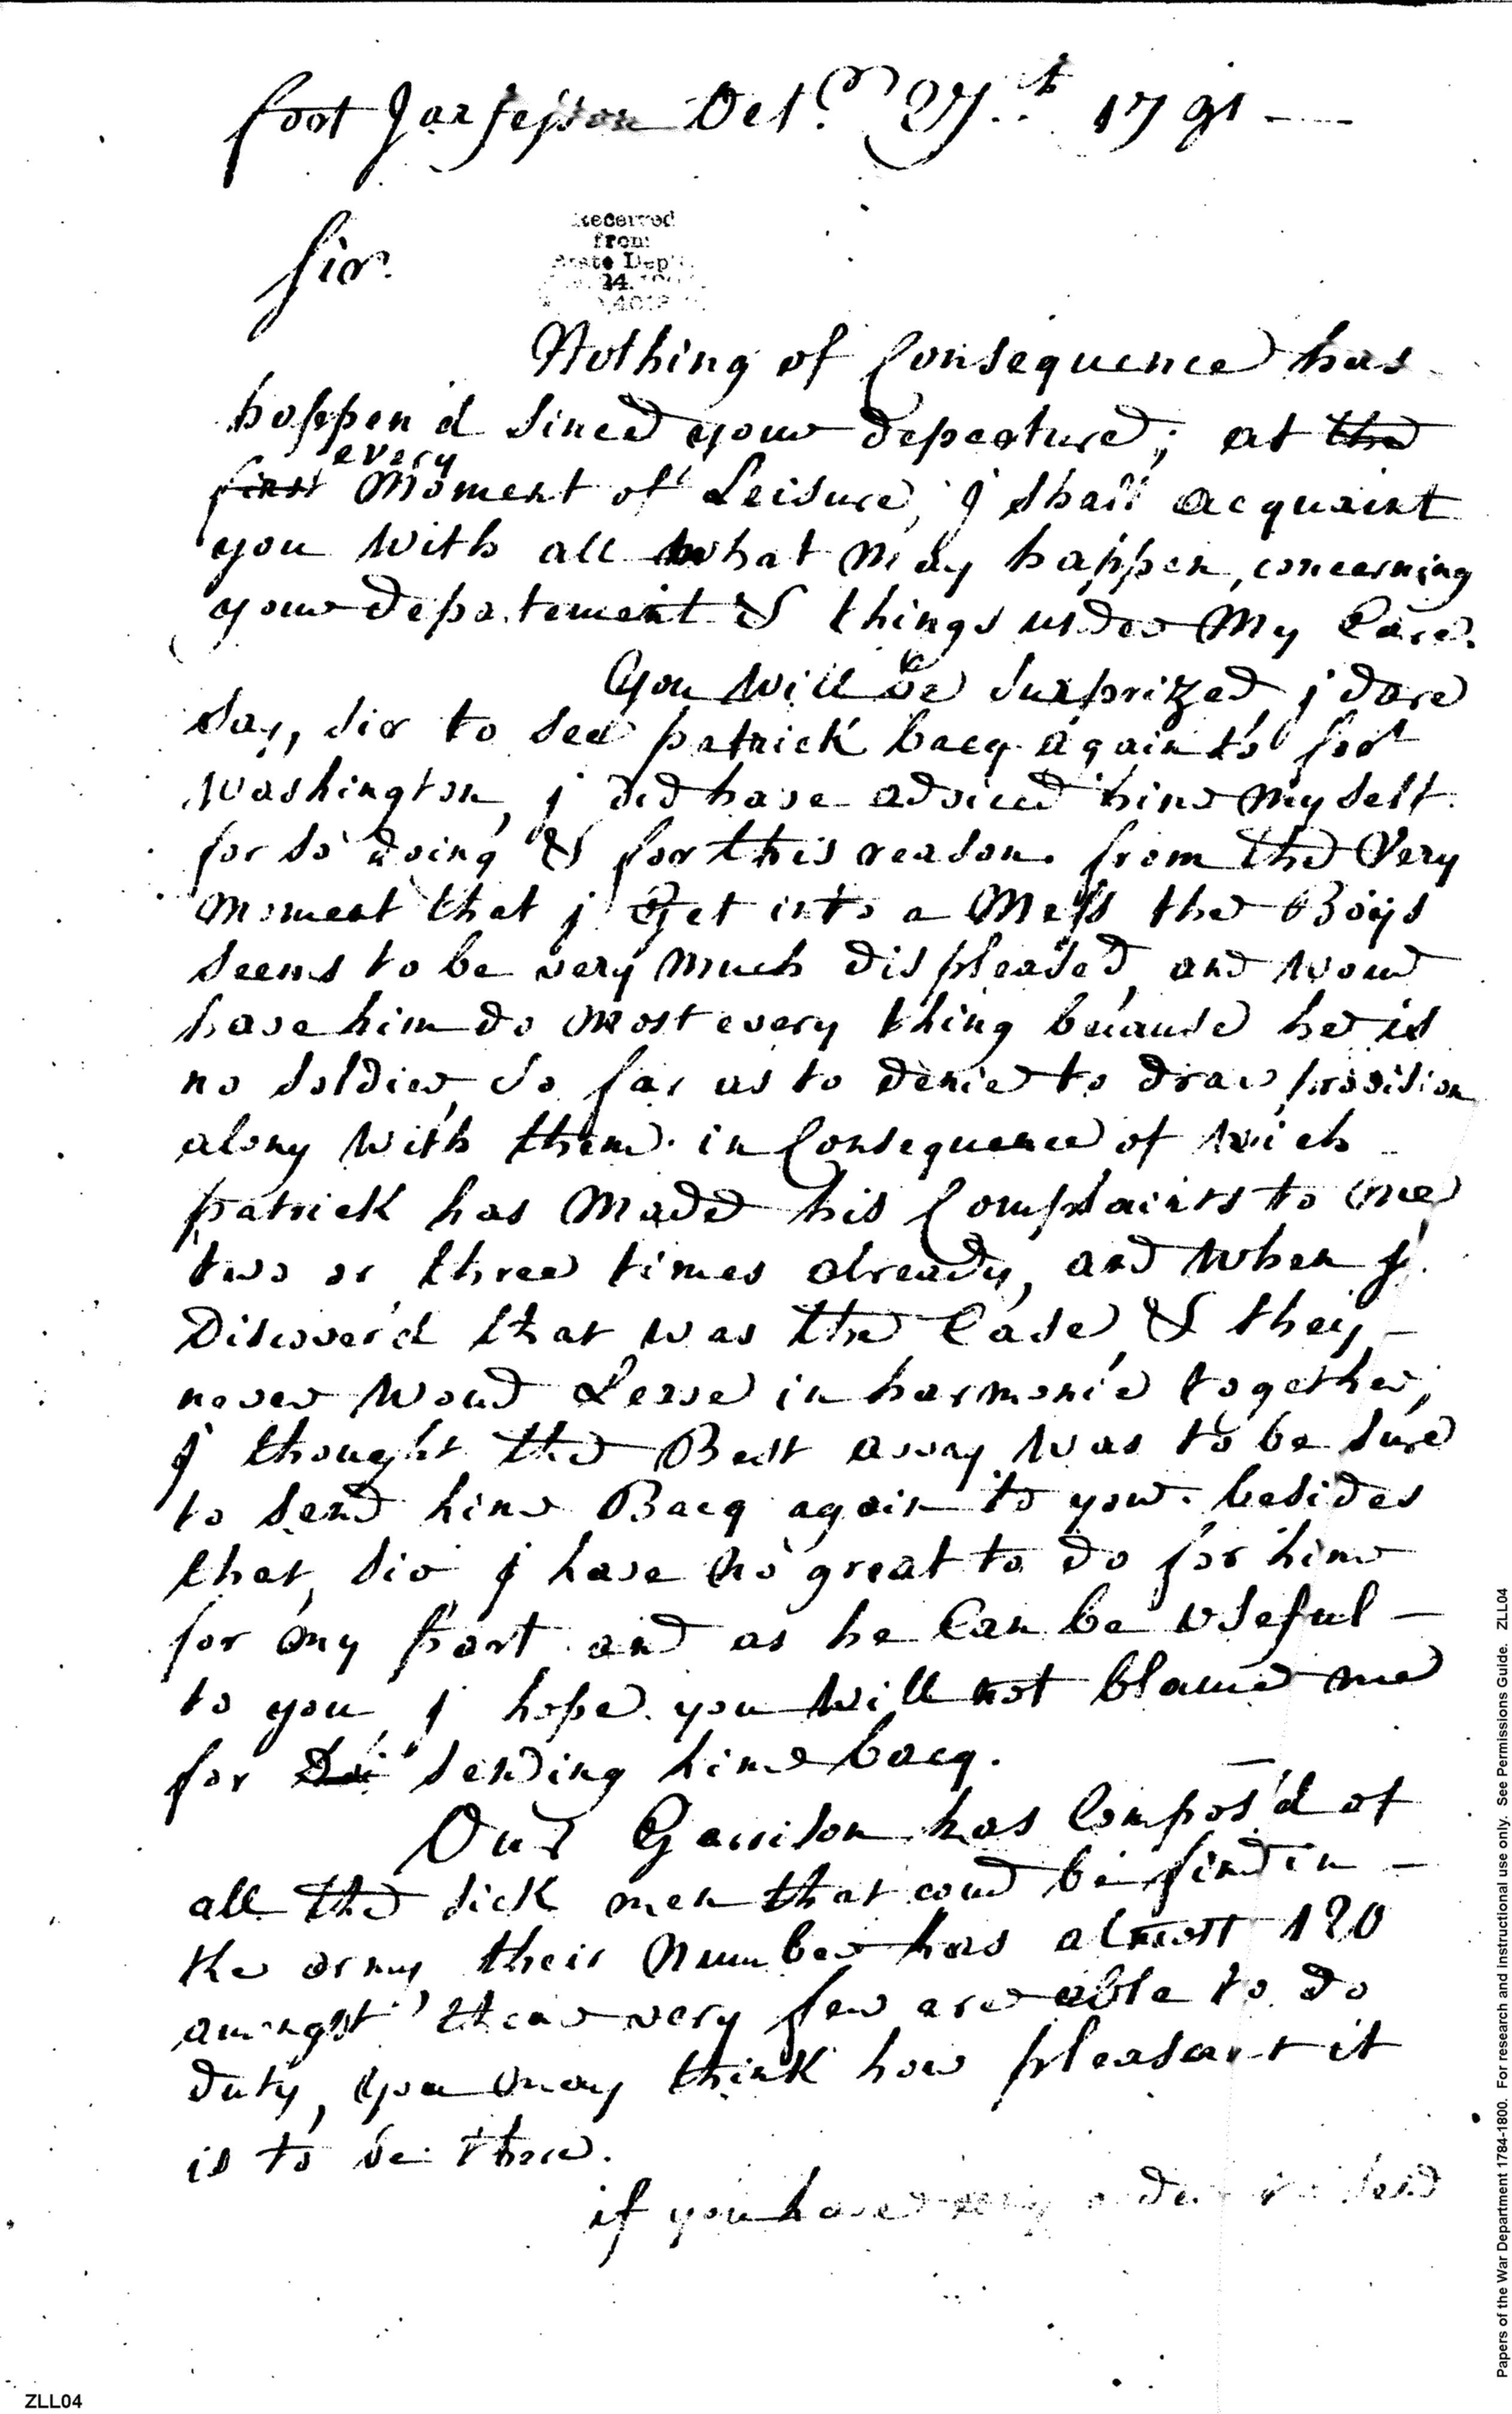 foort Jaafejson Oct.r 27.th 1791 ---
Received
from
State Dep't
Sir.
Nothing of Consequence has
happen'd since your depearture; at the
every
first Moment of Leisure, j shall acquaint
you with all what may happen, concerning
your departement & things under My Care.
You will be surprized j dare
say, sir to see patrick bacq again to fort
washington, j did have adviced him myself
for so doing & for this reason. from the Very
moment that j Get into a Mess the Boys
seems to be very much displeased, and woud
have him do most every thing because he is
no soldier, so far as to denie to draw provision
along with them. in Consequence of wich
patrick has Made his Complaints to me
two or three times already, and when j
Discover'd that was the Case, & they
never woud Leave in harmonie together,
j thought the Best away was to be sure
to send him Bacq again to you. besides
that, sir j have no great to do for him
for my part and as he Can be useful
to you j hope you will not blame me
for sending him bacq.
Our Garrison has Compos'd of
all the sick men that coud be find in
the army their Number has almost 120
amongst them very few are able to do
duty, you may think how pleasant it
is to be there.
if you have any order to send
ZLL04
Papers of the War Department 1784-1800. For research and instructional use only. See Permissions Guide. ZLL04